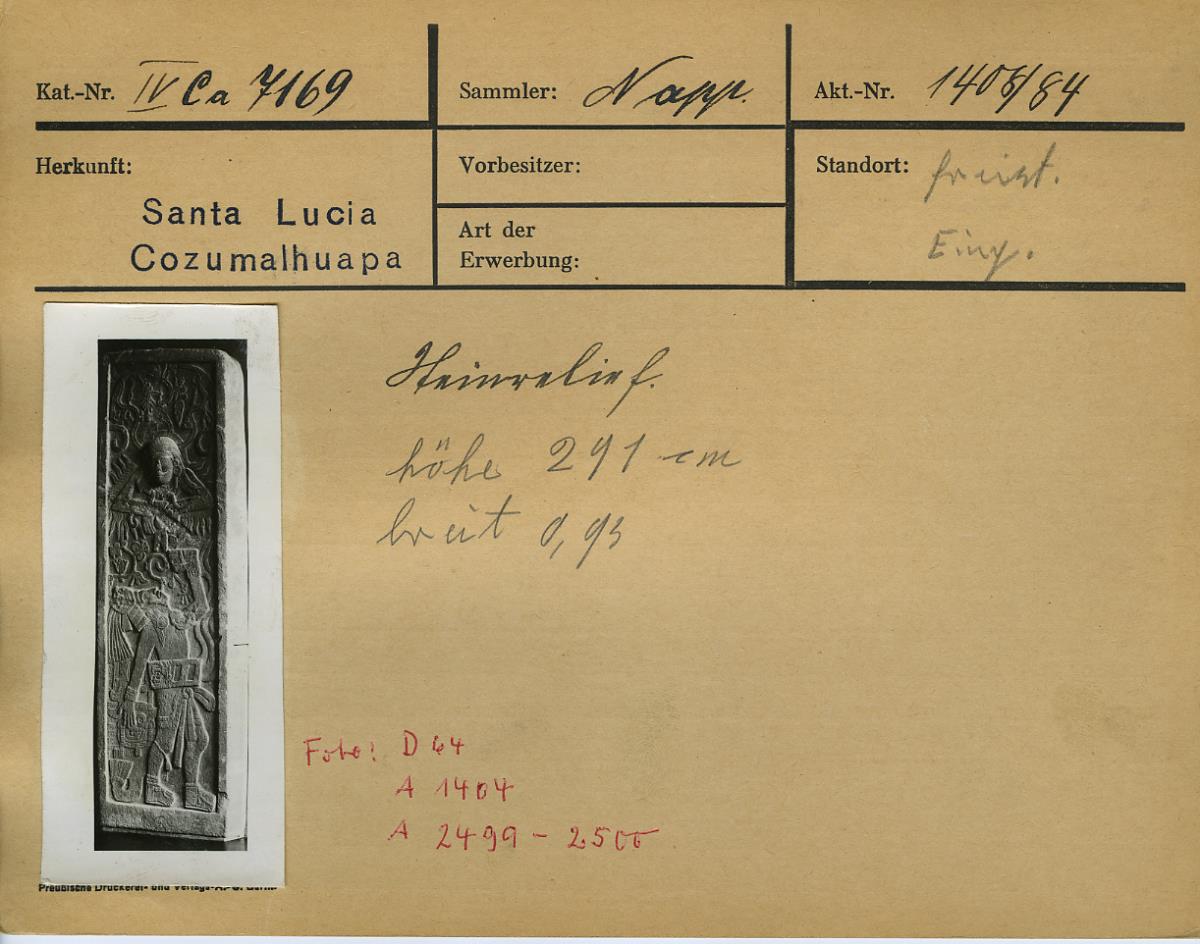 Kat.-Nr. IV Ca 7169
Sammler: Napp.
Akt.-Nr. 1408/84
Herkunft:
Santa Lucia
Cozumalhuapa
Vorbesitzer:
Art der
Erwerbung:
Standort:
Eing.
Steinrelief.
höhe 291 cm
breit 0,93
Foto: D 44
A 1404
A 2499 - 2500
Preußische Druckerei- und Verlags-A.-G. Berlin